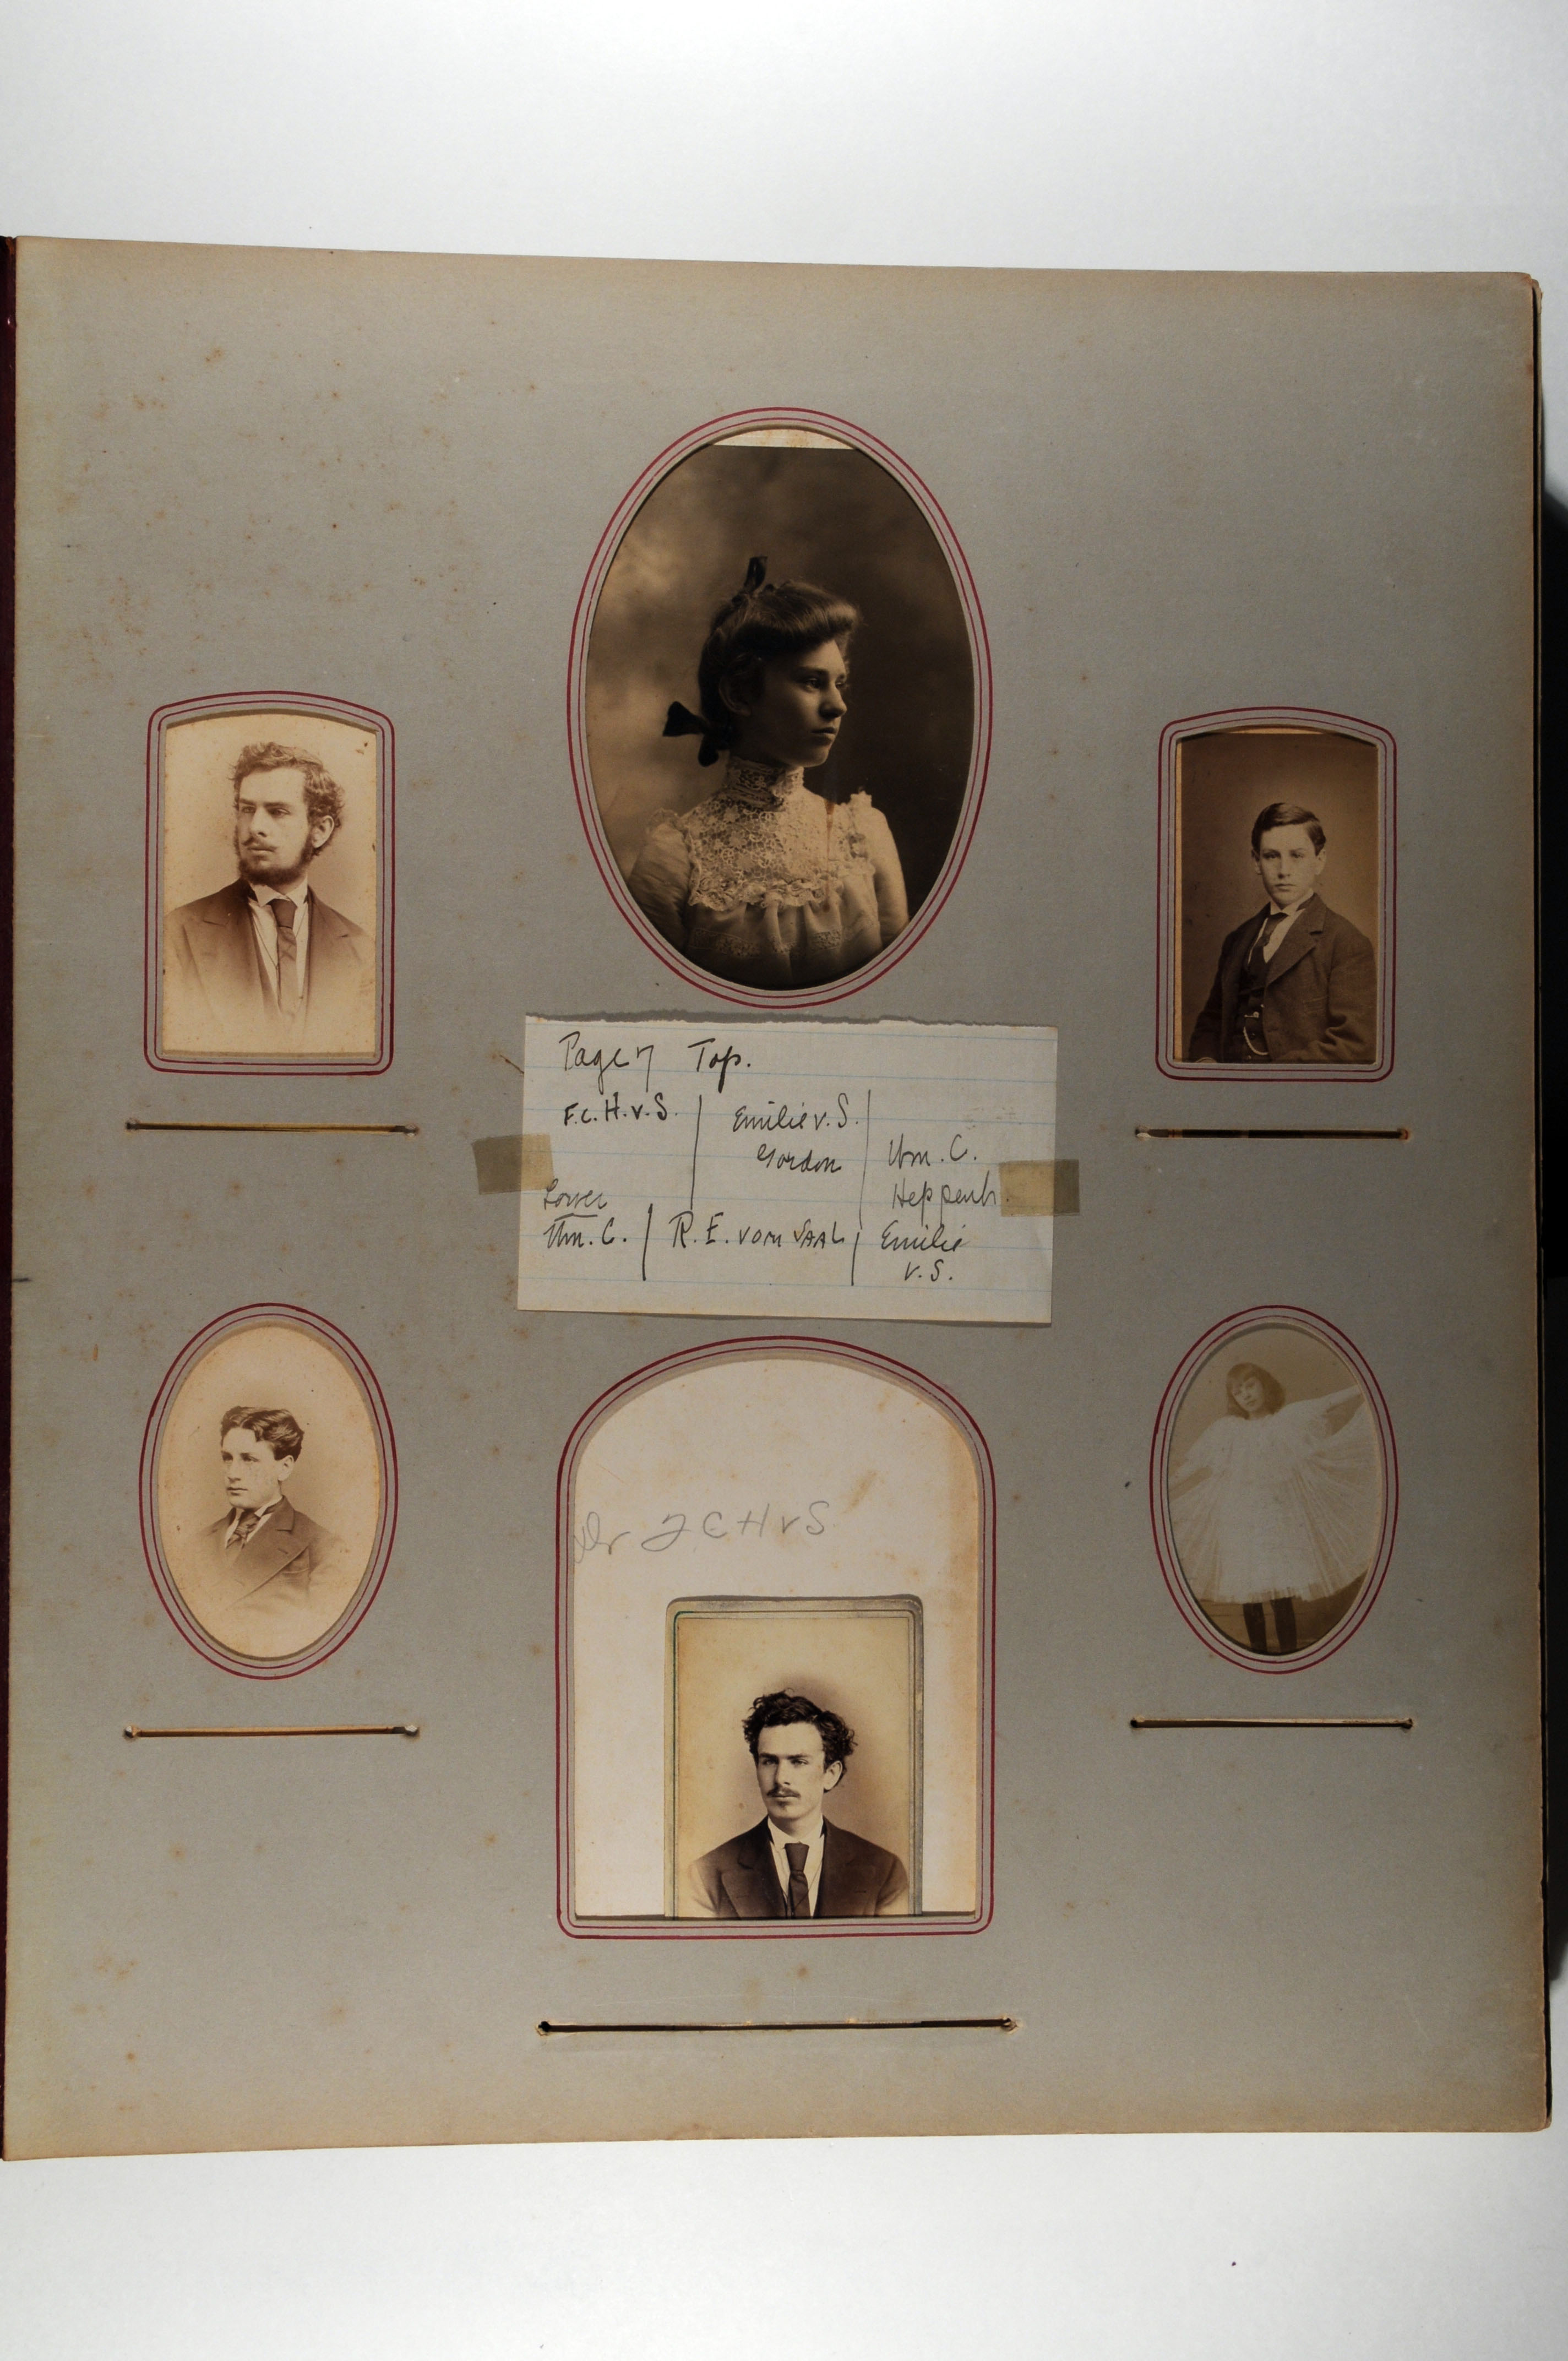 Page 7 Top.
F.C.H.v.S. | Emilie v.S. Gordon | Wm. C. Heppenh.
Lower
Wm. C. | R. E. vom SAAL | Emilie v.S.
F C H v S